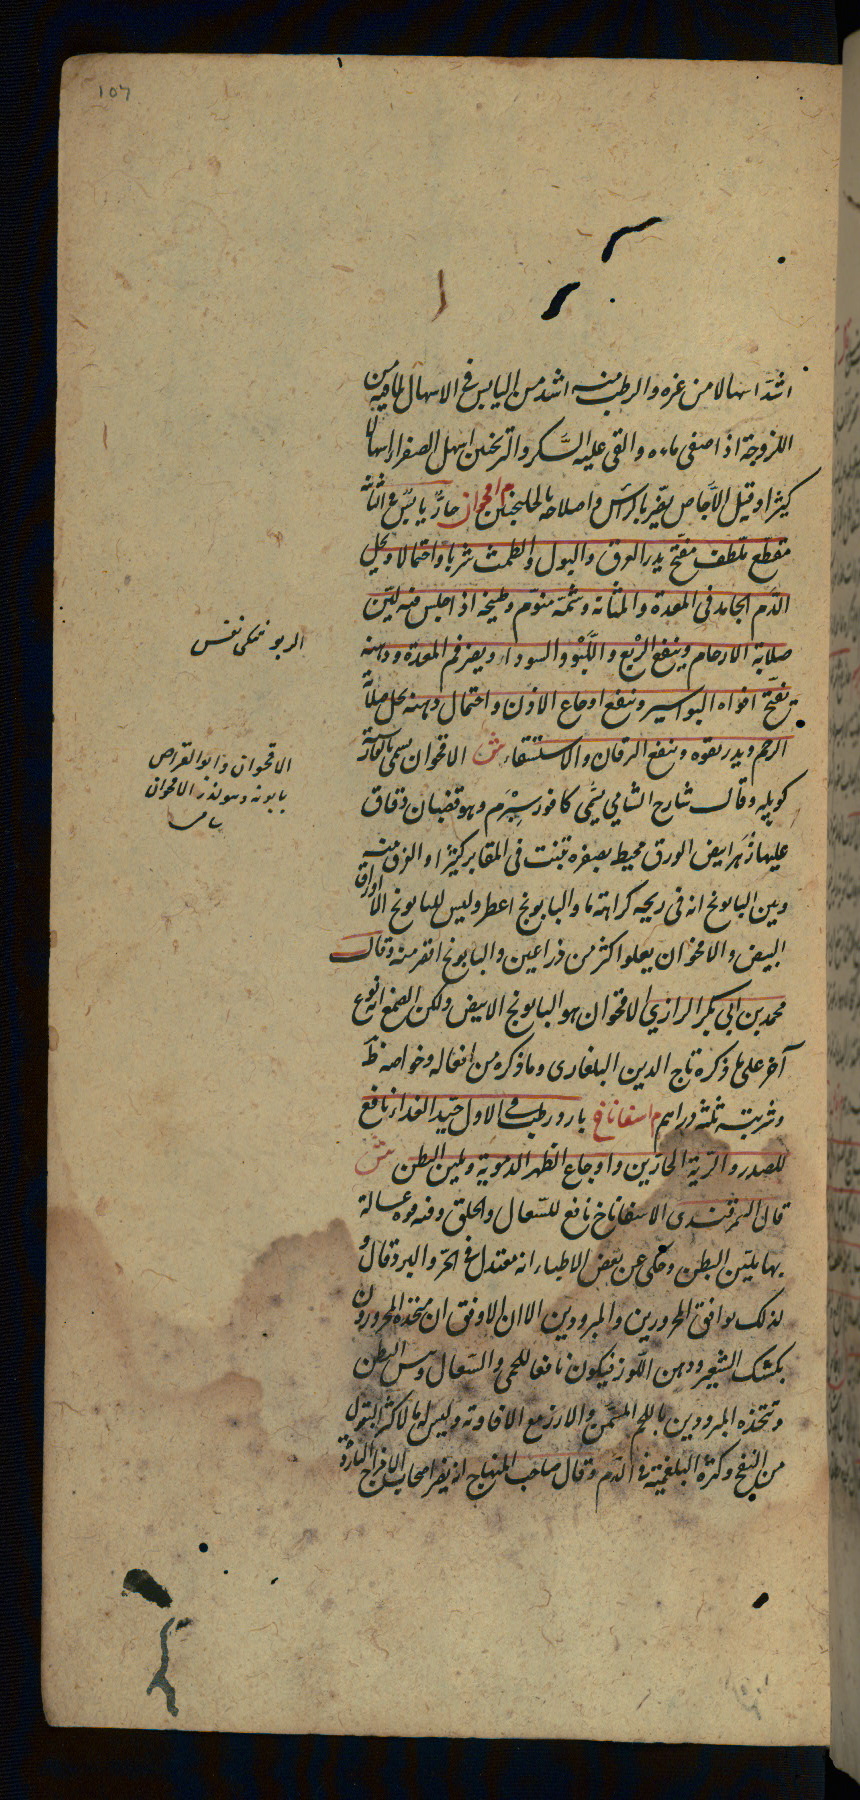 107
اشد اسهالا من غره والرطب منه اشد من اليابس فى الاسهال لما فيه من
اللزوجة اذا صفى ماءه والقى عليه السَّكر والترنجبين اسهل الصفراء اسهالا
كثيرا وقيل الاجاص يضر بالراس واصلاحه بالجلنجبين م اقحوان حارّ يابس فى الثالثة
مقطع ملطف مفتح يدر العرق والبول والطمث شربا واحتمالا ويحل
الدَّم الجامد فى المعدة والمثانة وشمه منوم وطبيخه اذا جلس فيه لين
صلابة الارحام وينفع الربو والسوداء ويضر فم المعدة ودهنه
تفتح افواه البواسير وينفع اوجاع الاذن واحتمال دهنه يحل صلابة
الرحم ويدر بقوه وينفع اليرقان والاستسقاء ش الاقحوان يسمى بالفارسية
كوپله وقال شارح الشامي يسمى كافور سپرم وهو قضبان دقاق
عليها زهر ابيض الورق محيط بصفره تنبت فى المقابر كثيرا والفرق بينه
وبين البابونج انه فى ريحه كراهة ما والبابونج اعطر وليس للبابونج الاوراق
البيض والاقحوان يعلو اكثر من ذراعين والبابونج اقصر منه وقال
محمد بن ابى بكر الرازي الاقحوان هو البابونج الابيض ولكن الصحيح انه نوع
آخر على ما ذكره تاج الدين البلغارى وما ذكره من افعاله وخواصه
وشربته ثلثة دراهم م اسفاناخ بارد رطب فى الاول جيد الغذاء نافع
للصدر والرية الحارّين واوجاع الظهر الدموية وملين البطن ش
قال السمرقندى الاسفاناخ نافع للسعال والحلق وفيه قوه غسالة
بها يليّن البطن وحكى عن بعض الاطباء انه معتدل فى الحرّ والبرد قال و
لذلك يوافق المحرورين والمبرودين الا ان الاوفق ان يتخذه المحرورون
بكشك الشعير ودهن اللوز فيكون نافعا للحمى والسعال ويبس البطن
وتتخذه المبرودين باللحم المسمَّن والارز مع الافاوية وليس له ما لاكثر البقول
من النفخ وكثرة البلغمية فى الدَّم وقال صاحب المنهاج انه يضر اصحاب الامزاج الباردة
الربو تنكى نفس
الاقحوان
بابونه